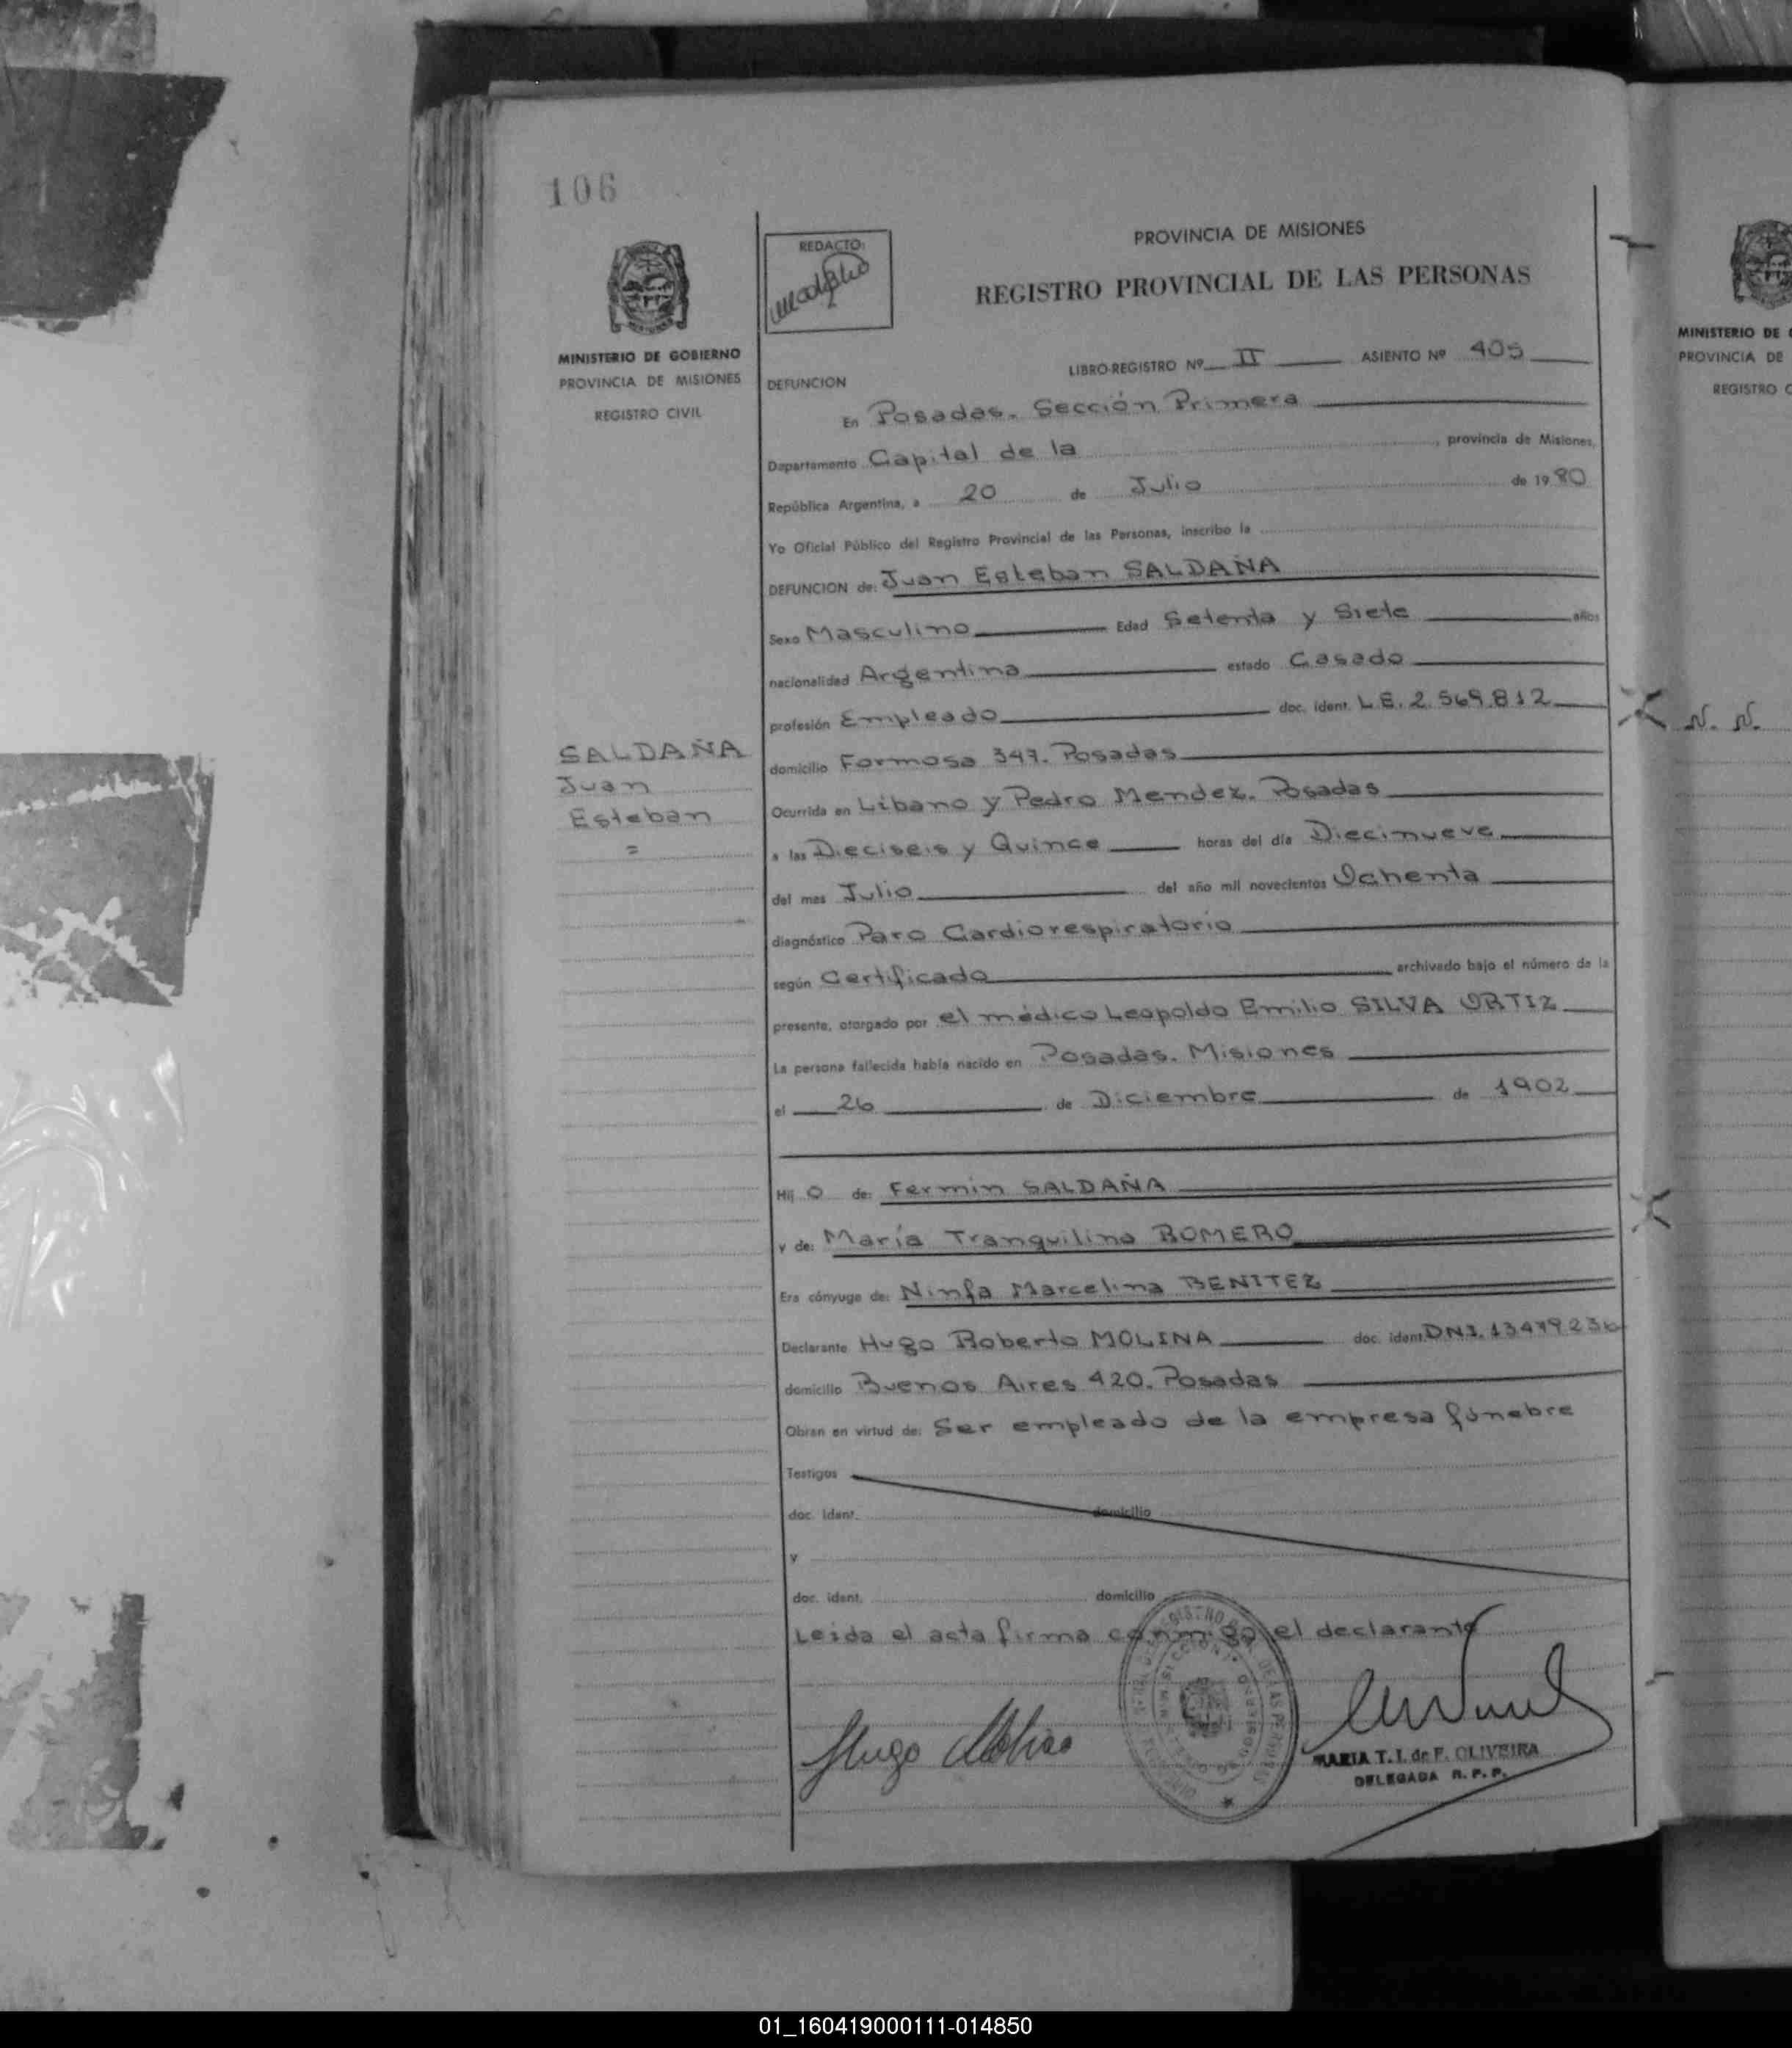 106
MINISTERIO DE GOBIERNO
PROVINCIA DE MISIONES
REGISTRO CIVIL
SALDAÑA
Juan
Esteban
=
REDACTO:
PROVINCIA DE MISIONES
REGISTRO PROVINCIAL DE LAS PERSONAS
LIBRO-REGISTRO Nº II ASIENTO Nº 405
DEFUNCION
En Posadas. Sección Primera
Departamento Capital de la, provincia de Misiones,
República Argentina, a 20 de Julio de 1980
Yo Oficial Público del Registro Provincial de las Personas, inscribo la
DEFUNCION de: Juan Esteban SALDAÑA
Sexo Masculino Edad Setenta y Siete años
nacionalidad Argentina estado Casado
profesión Empleado doc. ident. L.E. 2.569.812
domicilio Formosa 347. Posadas
Ocurrida en Líbano y Pedro Mendez. Posadas
a las Dieciseis y Quince horas del día Diecinueve
del mes Julio del año mil novecientos Ochenta
diagnóstico Paro Cardiorespiratorio
según Certificado archivado bajo el número de la
presente, otorgado por el médico Leopoldo Emilio SILVA ORTIZ
La persona fallecida había nacido en Posadas. Misiones
el 26 de Diciembre de 1902
Hij o de: Fermín SALDAÑA
y de: María Tranquilina ROMERO
Era cónyuge de: Ninfa Marcelina BENITEZ
Declarante Hugo Roberto MOLINA doc. ident. DNI. 13479236
domicilio Buenos Aires 420. Posadas
Obran en virtud de: Ser empleado de la empresa fúnebre
Testigos
doc. ident. domicilio
y
doc. ident. domicilio
Leida el acta firma conmigo el declarante
Hugo Molina
MARIA T. I. de F. OLIVEIRA
DELEGADA R. P. P.
MINISTERIO DE
PROVINCIA DE
REGISTRO
N. N.
01_160419000111-014850